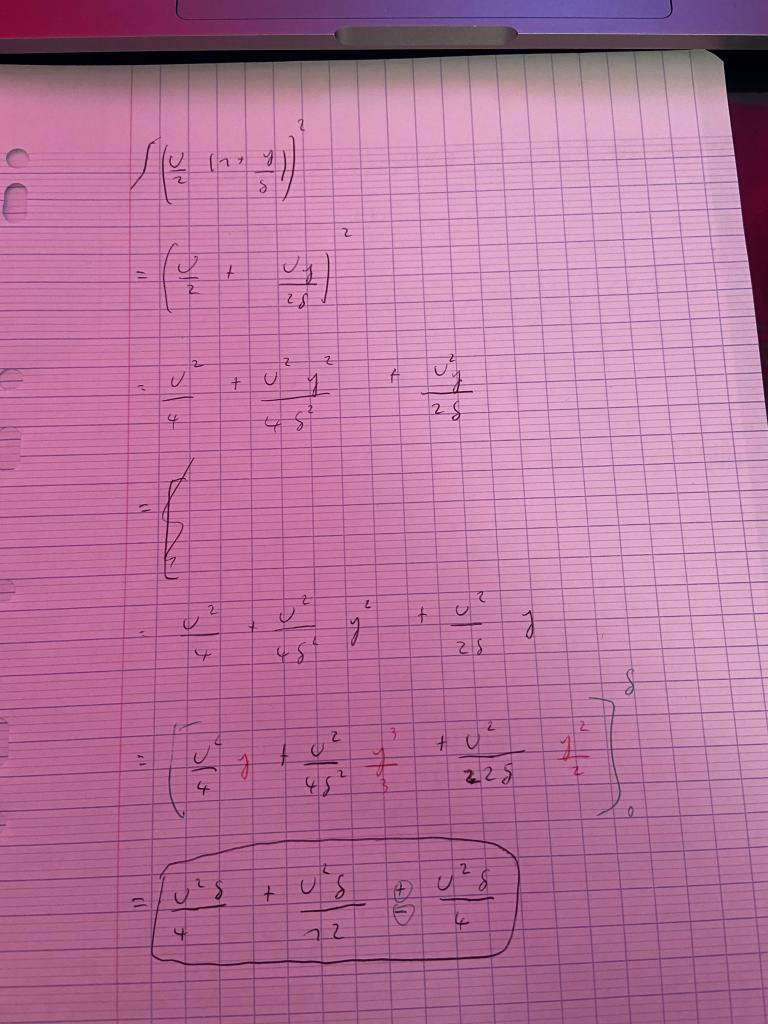 ∫ (U/2 (1 + y/δ))²
= (U/2 + Uy/2δ)²
= U²/4 + U² y²/4 δ² + U²y/2δ
= [
= U²/4 + U²/4δ² y² + U²/2δ y
= [U²/4 y + U²/4δ² y³/3 + U²/22δ y²/2]₀^δ
= U²δ/4 + U²δ/12 ⊕ ⊖ U²δ/4